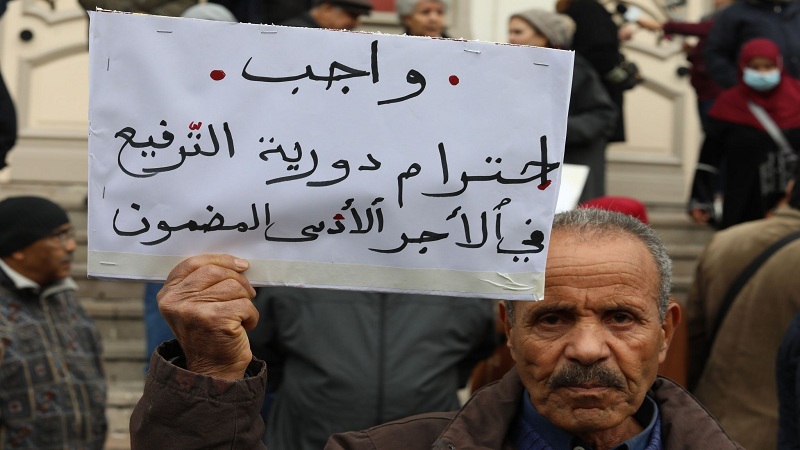 . واجب .
احترام دورية الترّفيع
في ٱلأجر ٱلأدنى المضمون